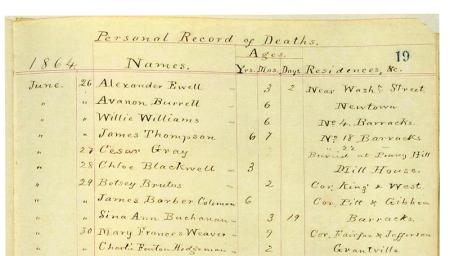 Personal Record of Deaths.
19
Ages.
1864 Names. Yrs. Mos. Days Residences, &c.
June. 26 Alexander Ewell — 3 2 Near Washn. Street
" " Avanon Burrell — 6 Newtown
" " Willie Williams — 6 No. 4. Barracks.
" " James Thompson 6 7 No. 18 Barracks
" 27 Cesar Gray " 22 "
Buried at Penny Hill
" 28 Chloe Blackwell — 3 Mill House.
" 29 Betsey Brutus — 2 Cor. King & West.
" " James Barber Coleman 6 Cor. Pitt & Gibbon
" " Sina Ann Buchanan — 3 19 Barracks.
" 30 Mary Frances Weaver — 9 Cor. Fairfax & Jefferson
" " Charls Fenton Hodgeman — 2 Grantville